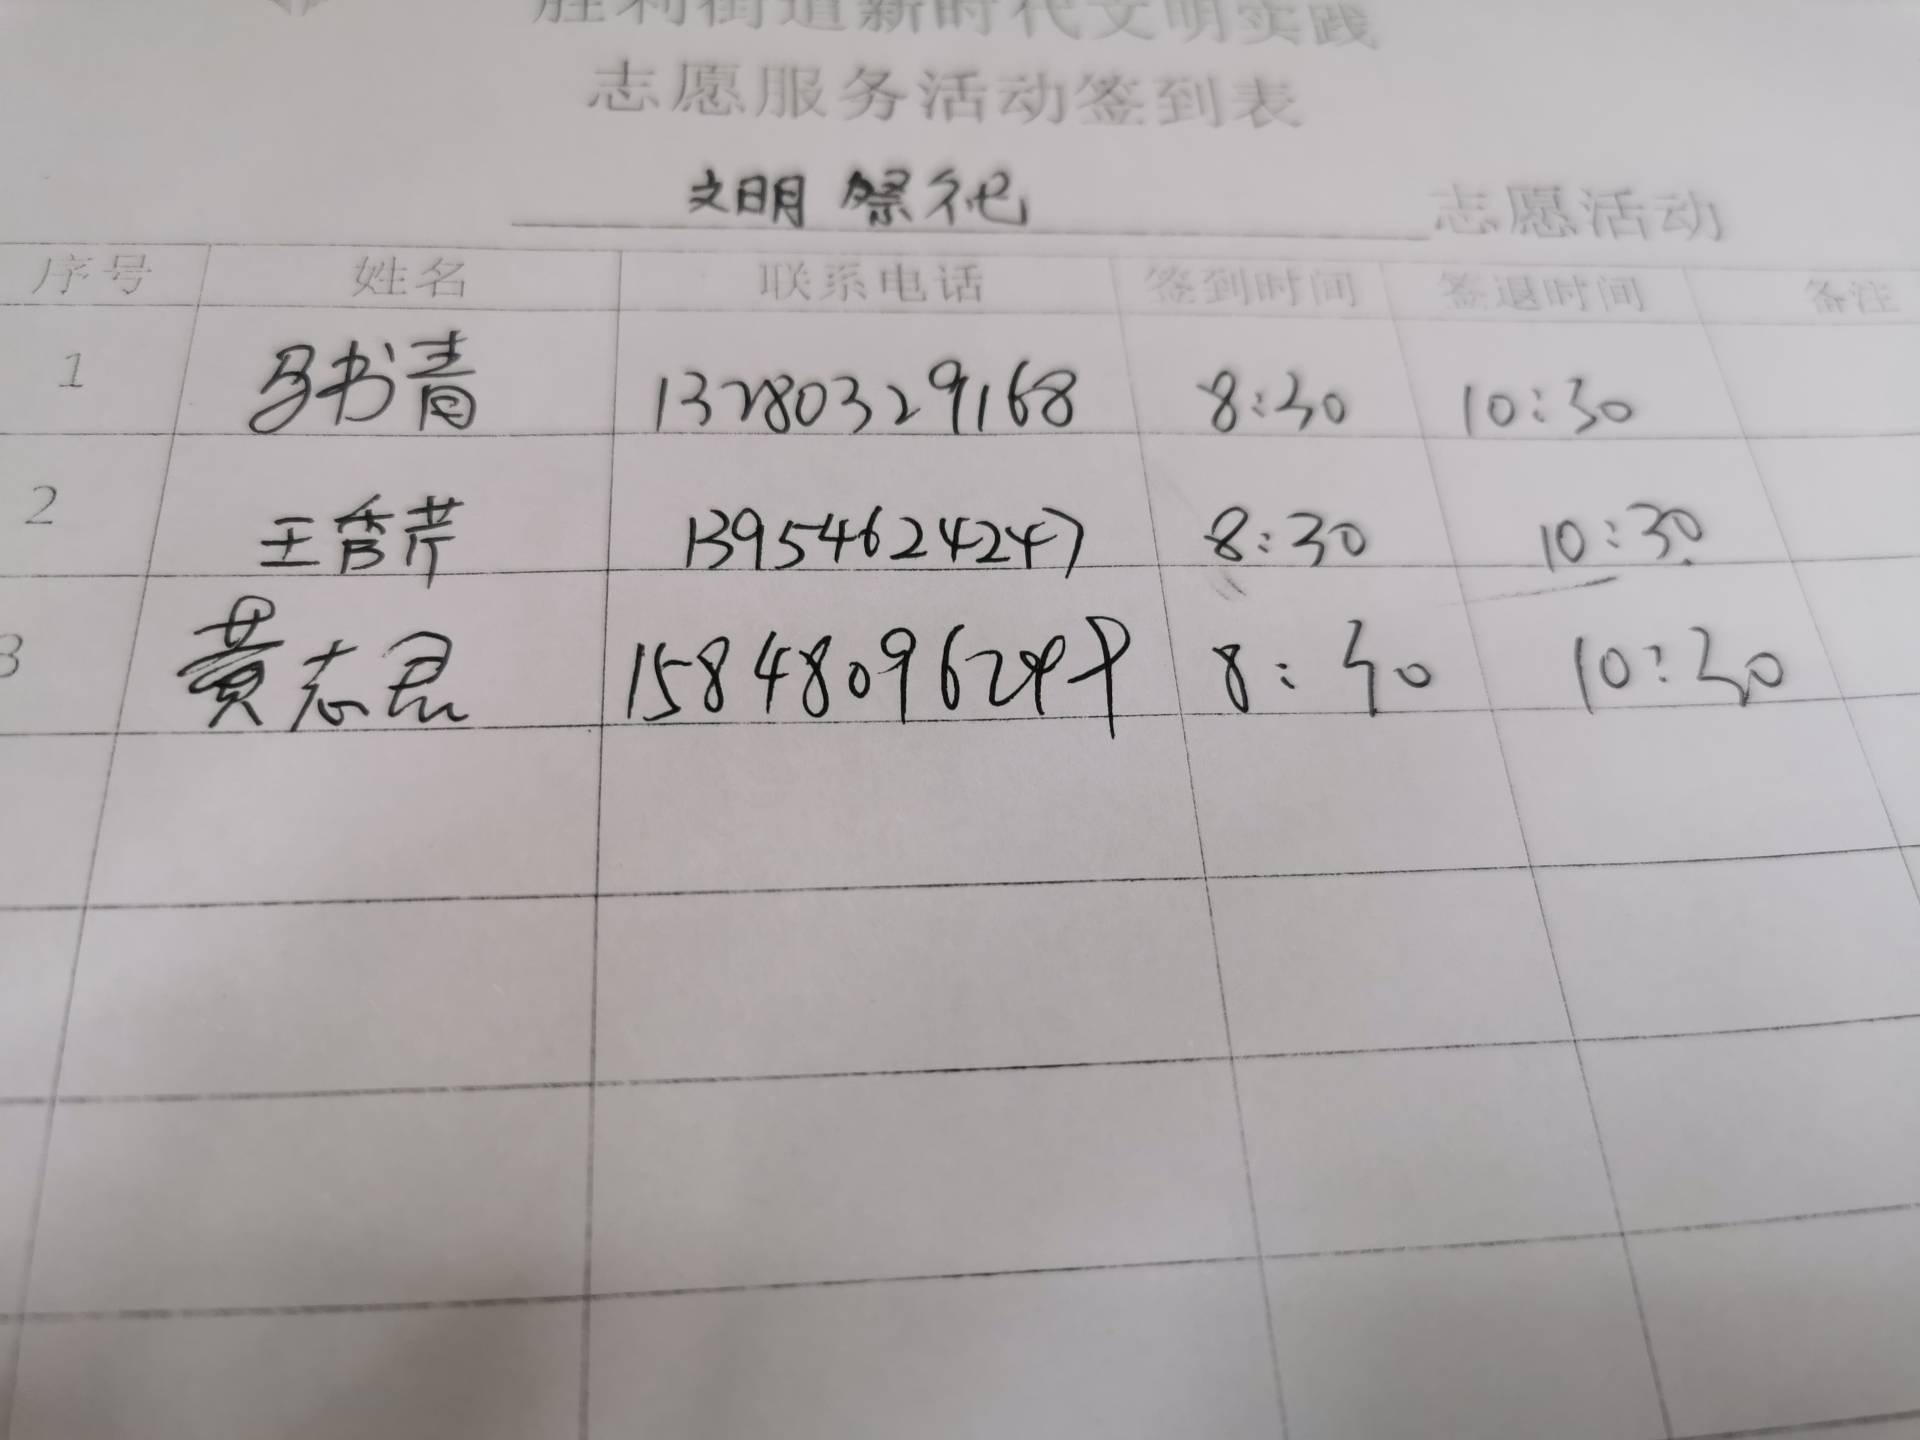 胜利街道新时代文明实践
志愿服务活动签到表
文明祭祀 志愿活动
序号 姓名 联系电话 签到时间 签退时间 备注
1 书青 13280329168 8:30 10:30
2 王香芹 13954624247 8:30 10:30
3 黄志君 8:30 10:30